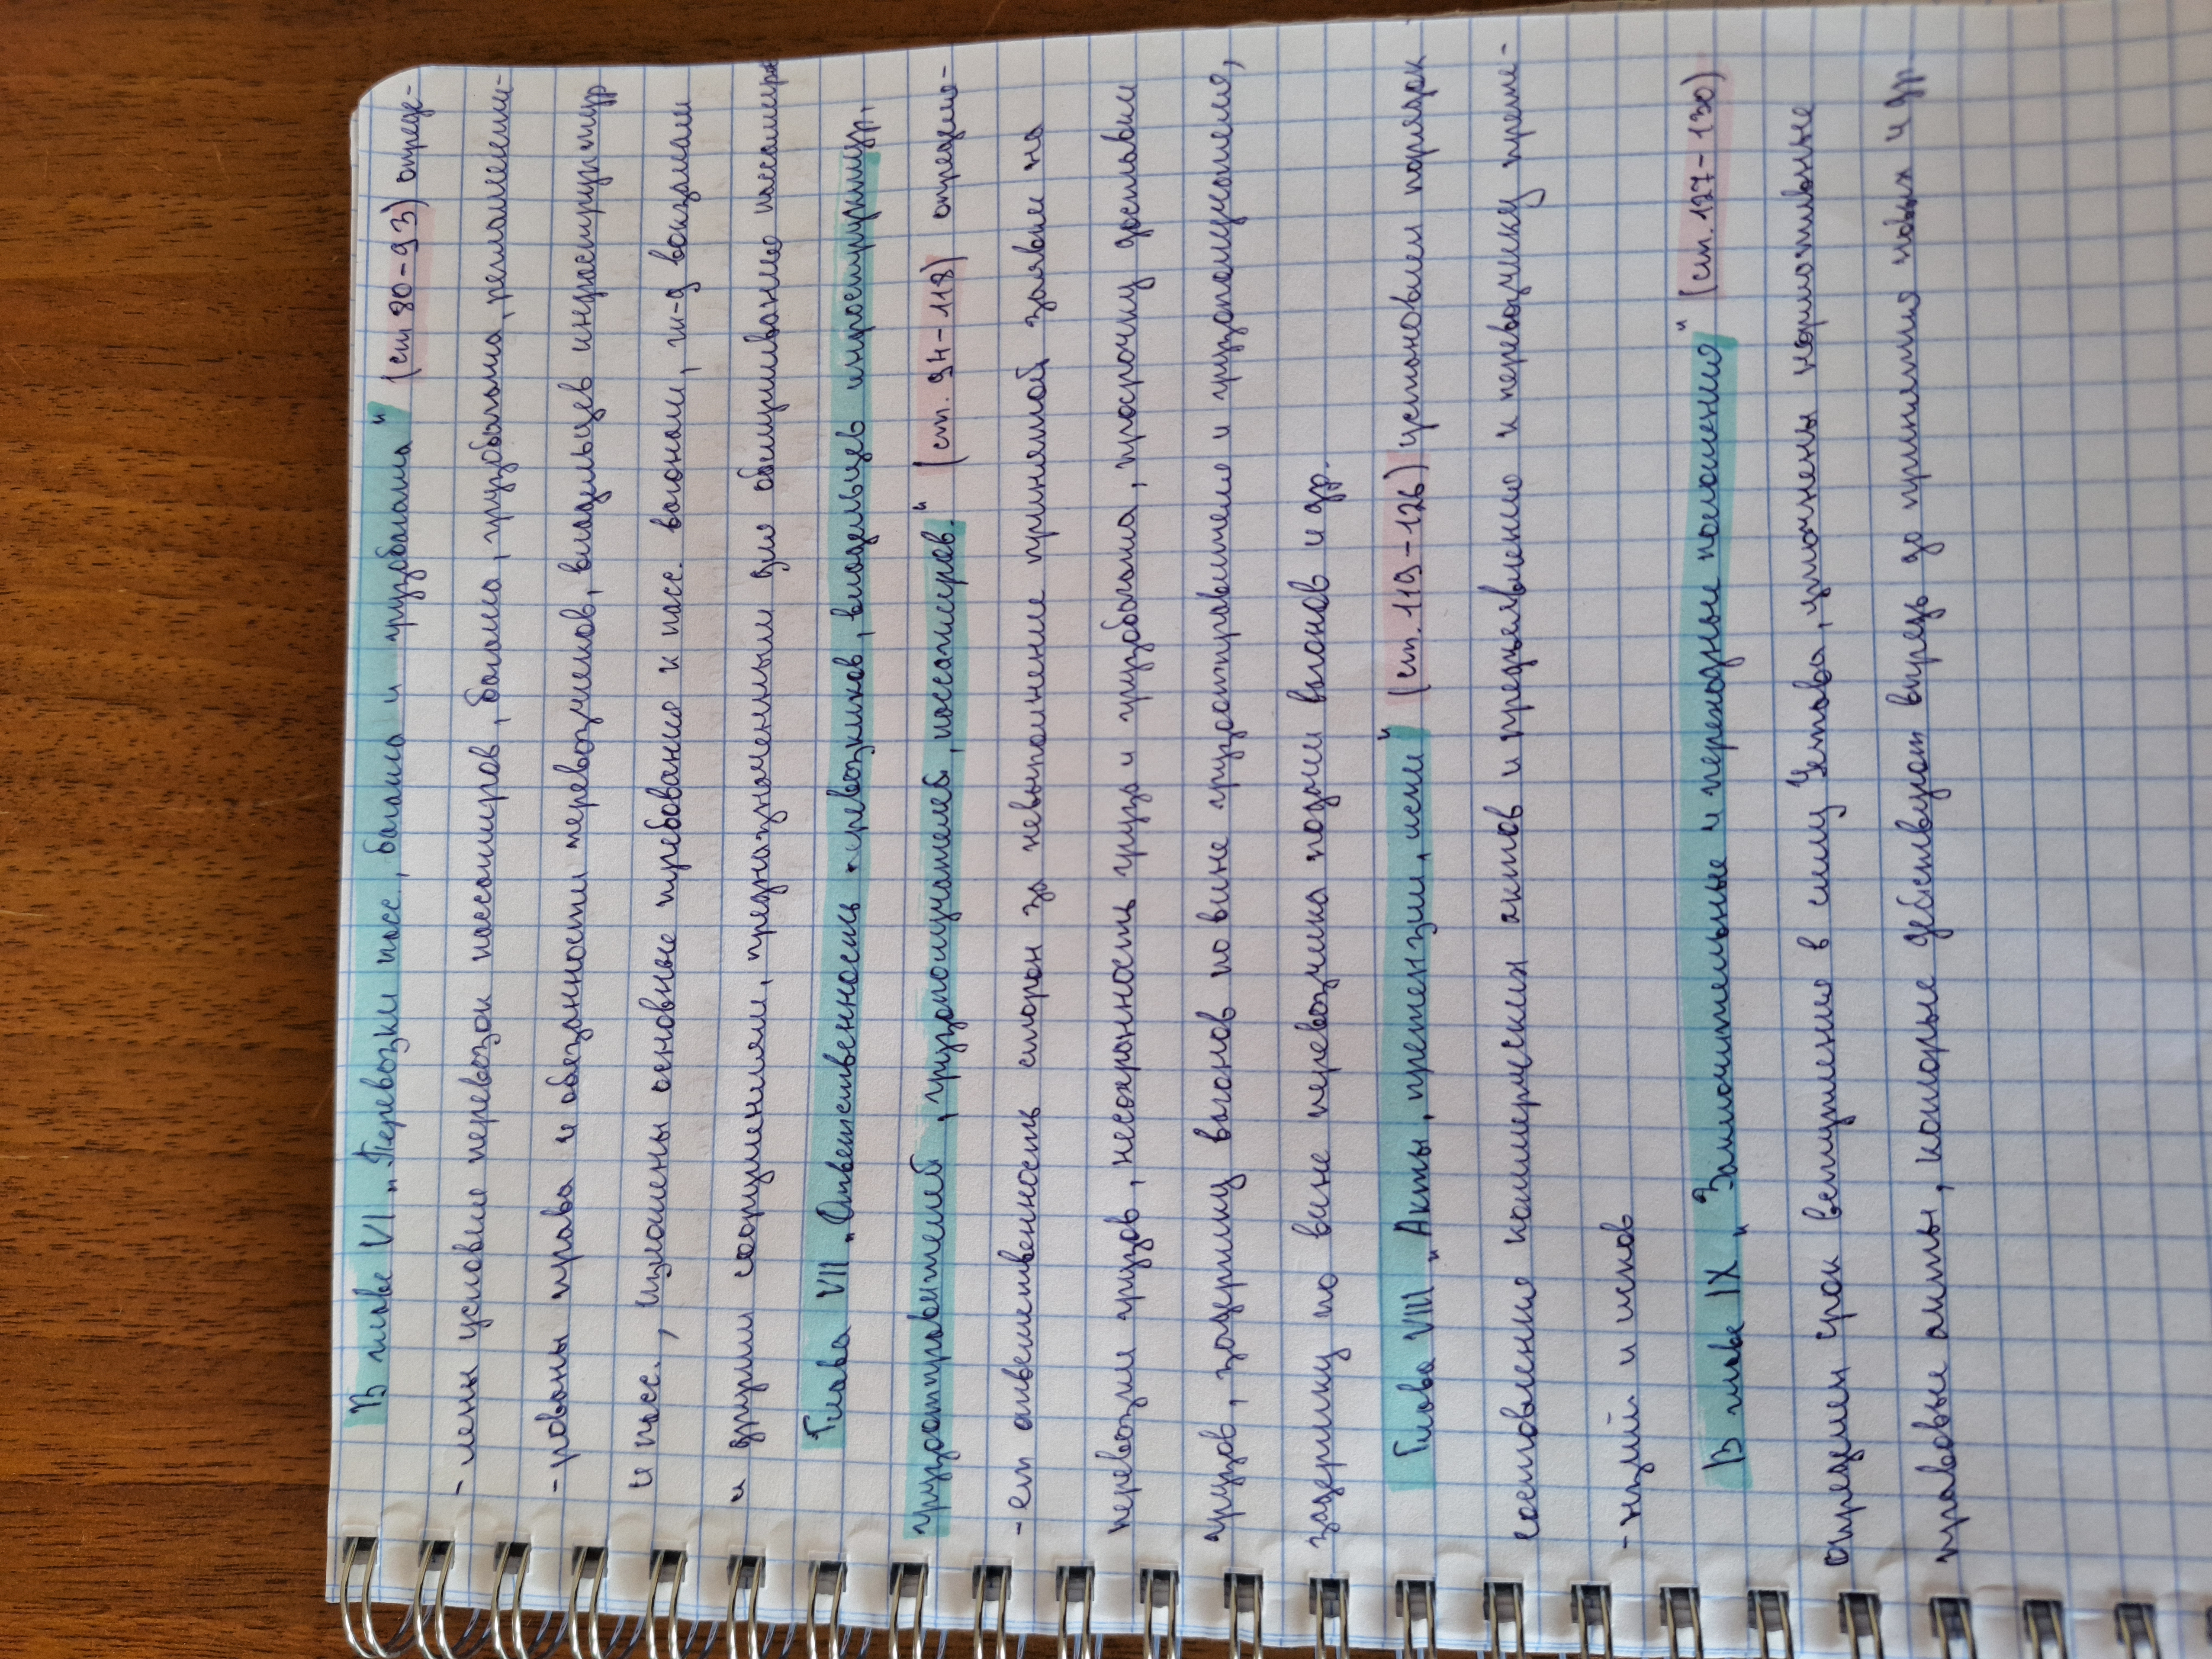 В главе VI „Перевозки пасс., багажа и грузобагажа" (ст 80-93) опреде-
-лены условия перевозок пассажиров, багажа, грузобагажа, регламенти-
-рованы права и обязанности перевозчиков, владельцев инфраструктур
и пасс., изложены основные требования к пасс. вагонам, ж-д вокзалам
и другим сооружениям, предназначенным для обслуживания пассажиров
Глава VII „Ответственность перевозчиков, владельцев инфраструктур,
грузоотправителей, грузополучателей, пассажиров." (ст. 94-118) определя-
-ет ответственность сторон за невыполнение принятой заявки на
перевозки грузов, несохранность груза и грузобагажа, просрочку доставки
грузов, задержку вагонов по вине грузоотправителя и грузополучателя,
задержку по вине перевозчика подачи вагонов и др.
Глава VIII „Акты, претензии, иски" (ст. 119-126) установлен порядок
составления коммерческих актов и предъявления к перевозчику претен-
-нзий и исков
В главе IX „Заключительные и переходные положения" (ст. 127-130)
определен срок вступления в силу Устава, уточнены нормативные
правовые акты, которые действуют впредь до принятия новых и др.